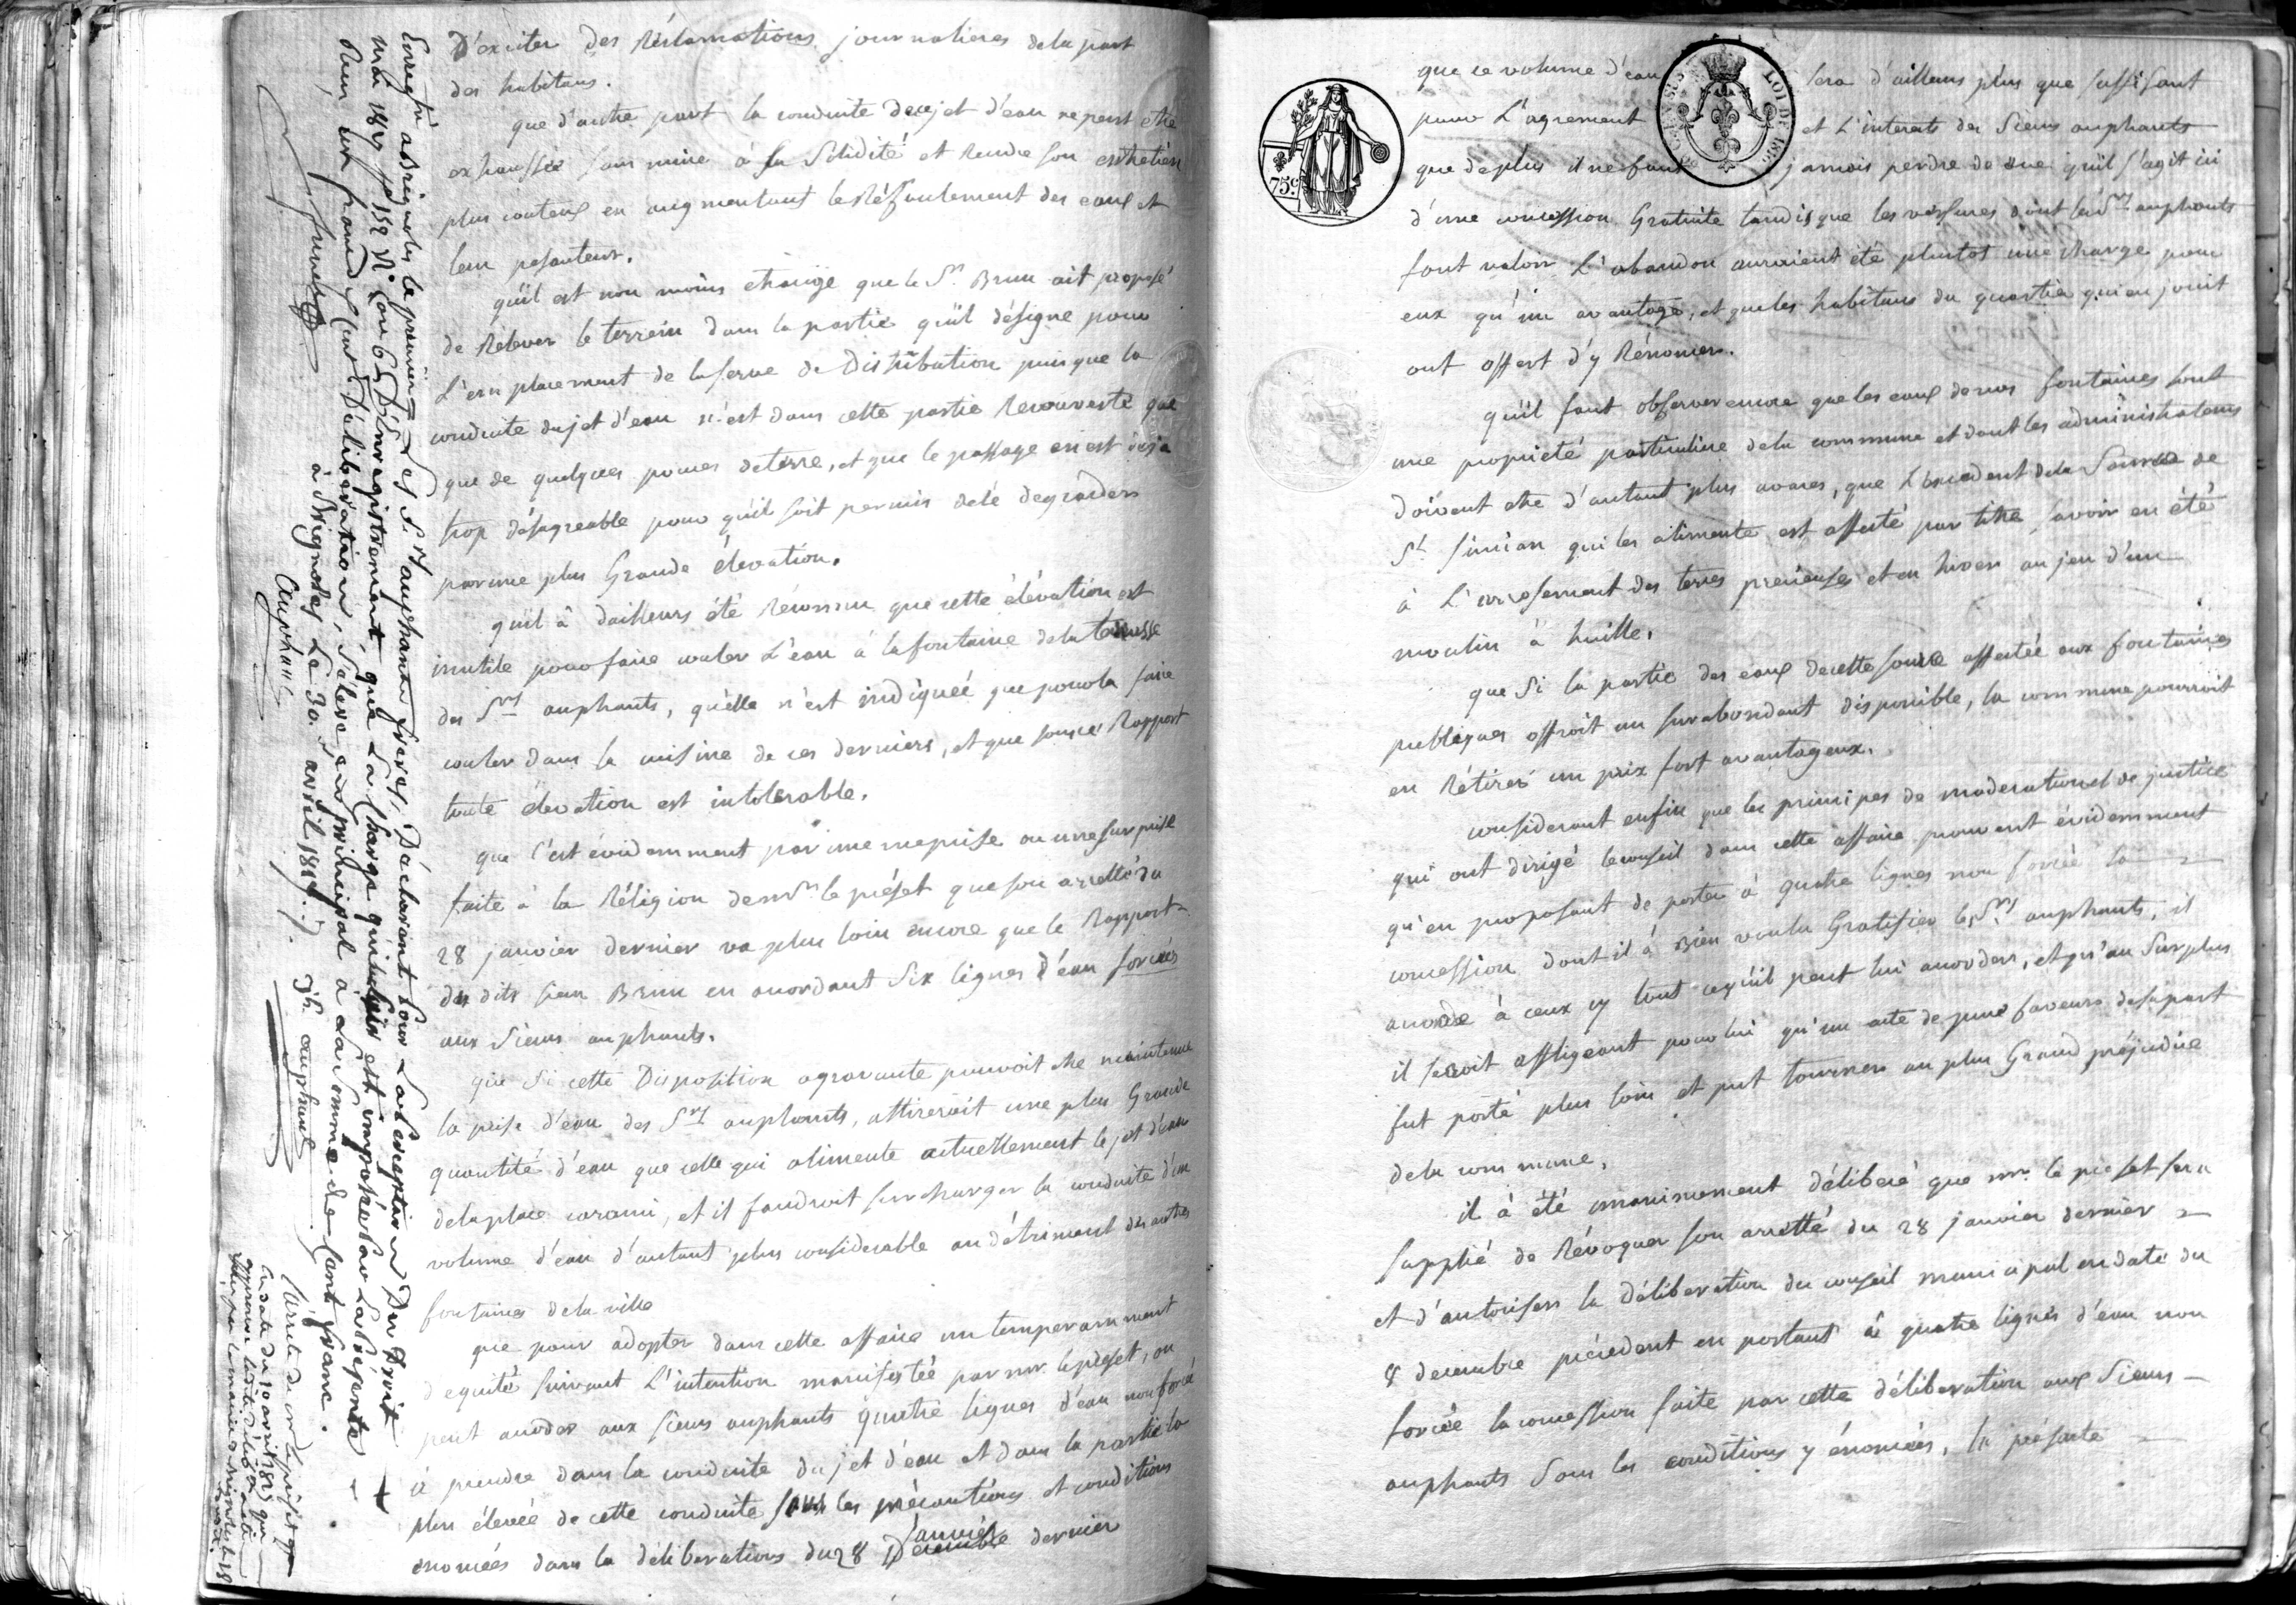 D'exciter des Réclamations journalieres de la part
des habitans.
que d'autre part la conduite du jet d'eau ne peut etre
exhaussée sans nuire à sa Solidité et Rendre son entretien
plus couteux en augmentant le Réfoulement des eaux et
leur pesanteur.
qu'il est non moins étrange que le Sr. Brun ait proposé
de Rélever le terrein dans la partie qu'il désigne pour
L'emplacement de la serve de Distribution puisque la
conduite du jet d'eau n'est dans cette partie Recouverte que
que de quelques pouces de terre, et que le passage en est déja
trop désagreable pour qu'il soit permis de le dégrader
par une plus Grande élévation.
qu'il à d'ailleurs été Réconnu que cette élévation est
inutile pour faire couler L'eau à la fontaine de la terrasse
des Srs auphants, qu'elle n'est indiquée que pour la faire
couler dans la cuisine de ces derniers, et que sous ce Rapport
toute élevation est intolerable.
que c'est évidemment par une meprise ou une surprise
faite à la Réligion de mr. le préfet que son arretté du
28 janvier dernier va plus loin encore que le Rapport
du dits sieur Brun en accordant Six lignes d'eau forcées
aux Sieurs auphants.
que Si cette Disposition agravante pouvoit etre maintenue
la prise d'eau des Srs auphants, attireroit une plus Grande
quantité d'eau que celle qui alimente actuellement le jet d'eau
de la place carami, et il faudroit surcharger la conduite d'un
volume d'eau d'autant plus considerable au détriment des autres
fontaines de la ville
que pour adopter dans cette affaire un temperamment
d'equité suivant L'intention manifestée par mr. le préfet, on
peut accorder aux sieurs auphants quatre lignes d'eau non forcé
à prendre dans la conduite du jet d'eau et dans la partie la
plus élevée de cette conduite sous les précautions et conditions
enoncées dans la déliberations du 28 Décembre dernier
janvier
Enregistré à Brignoles le premier
mai 1819 fo 152
Les Srs auphants freres, Déclarant pour La perception Du Droit
D'Enregistrement, que La Charge qui leur est imposée par La présente
Déliberation, S'éleve en principal à La Somme de Cent francs.
à Brignoles Le 30 avril 1819.
auphant
jh. auphant
L'arrêté de mr le préfet
en date du 10 avril 1819 qui
approuve
que ce volume d'eau sera d'ailleurs plus que suffisant
pour L'agrement et L'interets des Sieurs auphants
que de plus il ne faut jamais perdre de vue qu'il s'agit ici
d'une concession Gratuite tandis que les versures dont les Srs auphants
font valoir L'abandon auraient été plutot une charge pour
eux qu'un avantage, et que les habitans du quartier qui en jouit
ont offert d'y Rénoncer.
qu'il faut observer encore que les eaux de nos fontaines sont
une proprieté particuliere de la commune et dont les administrateurs
doivent etre d'autant plus avares, que L'excedent de la Source de
St. Simian qui les alimente est affecté par titre, savoir en été
à L'arrosement des terres precieuses et en hiver au jeu d'un
moulin à huille.
que Si la partie des eaux de cette source affectée aux fontaines
publiques offroit un surabondant disponible, la commune pourroit
en Rétirer un prix fort avantageux.
considerant enfin que les principes de moderation et de justice
qui ont dirigé le conseil dans cette affaire prouvent évidemment
qu'en proposant de porter à quatre lignes non forcée la
concession dont il à Bien voulu Gratifier les Srs auphants, il
accorde à ceux cy tout ce qu'il peut lui accorder, et qu'au Surplus
il seroit affligeant pour lui qu'un acte de pure faveure de sa part
fut porté plus loin et put tourner au plus Grand préjudice
de la commune.
il à été unanimement déliberé que mr. le prefet sera
Supplié de Révoquer son arretté du 28 janvier dernier
et d'autoriser la déliberation du conseil municipal en date du
8 decembre précedent en portant à quatre lignes d'eau non
forcée la concession faite par cette déliberation aux Sieurs
auphants Sous les conditions y énoncées, la présente
75c
LOI DE 1816